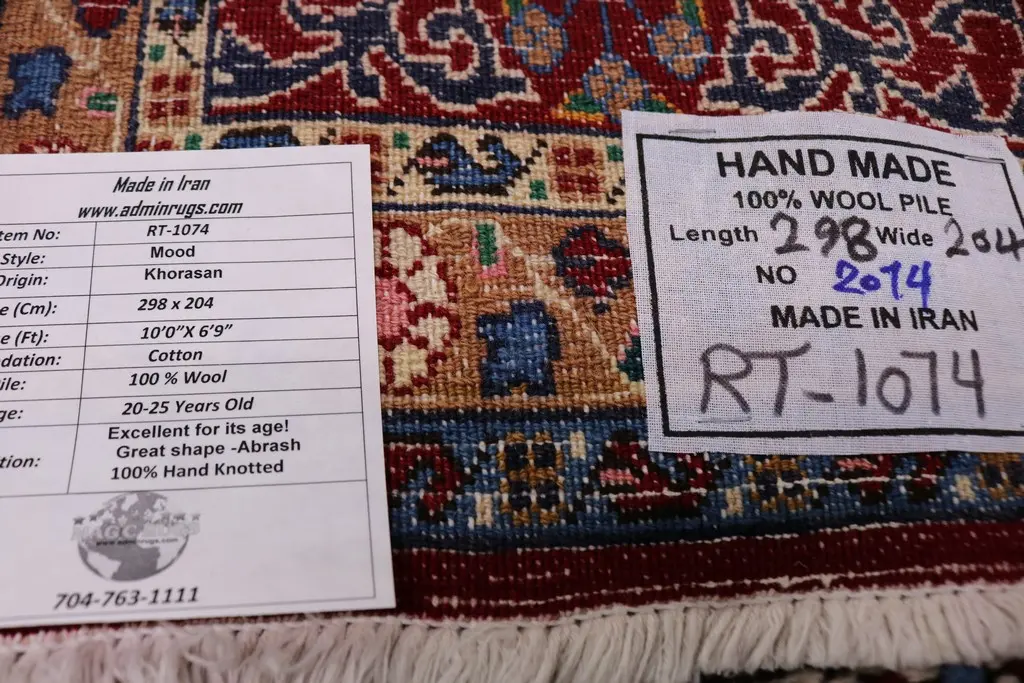 Made in Iran
www.adminrugs.com
tem No: RT-1074
Style: Mood
Origin: Khorasan
e (Cm): 298 x 204
e (Ft): 10'0"X 6'9"
dation: Cotton
ile: 100 % Wool
ge: 20-25 Years Old
tion: Excellent for its age!
Great shape -Abrash
100% Hand Knotted
www.adminrugs.com
704-763-1111
HAND MADE
100% WOOL PILE
Length 298 Wide 204
NO 2074
MADE IN IRAN
RT-1074